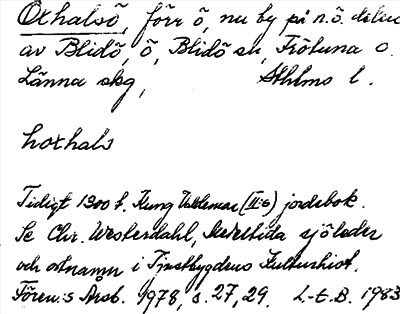 Oxhalsö, förr ö, nu by på n.ö. delen
av Blidö, ö, Blidö sn, Frötuna o.
Länna skg, Sthlms l.
hoxhals
Tidigt 1300 t. Kung Valdemar (II:s) jordebok.
Se Chr. Westerdahl, Medeltida sjöleder
och ortnamn i Tjustbygdens Kulturhist.
Fören:s Årsb. 1978, s. 27, 29. L-E.B. 1983